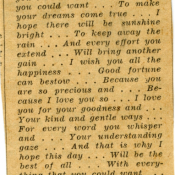 you could want . . . To make
your dreams come true . . . I
hope there will be sunshine
bright . . . To keep away the
rain . . . And every effort you
extend . . . Will bring another
gain . . . I wish you all the
happiness . . . Good fortune
can bestow . . . Because you
are so precious and . . . Be-
cause I love you so . . . I love
you for your goodness and . . .
Your kind and gentle ways . . .
For every word you whisper
and . . . Your understanding
gaze . . . And that is why I
hope this day . . . Will be the
best of all . . . With every-
thing that you could want